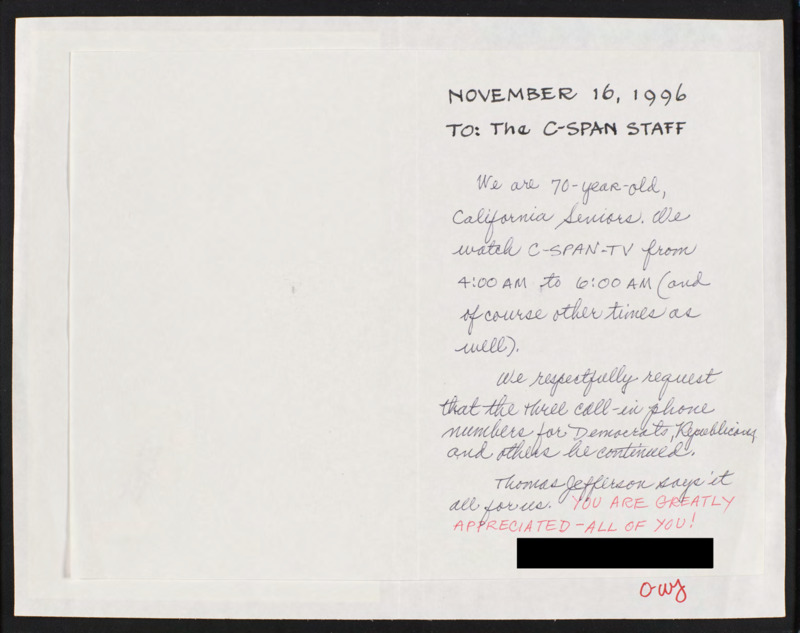 NOVEMBER 16, 1996
TO: The C-SPAN STAFF
We are 70-year-old,
California Seniors. We
watch C-SPAN-TV from
4:00 AM to 6:00 AM (and
of course other times as
well).
We respectfully request
that the three call-in phone
numbers for Democrats, Republicans,
and others be continued.
Thomas Jefferson says it
all for us. YOU ARE GREATLY
APPRECIATED - ALL OF YOU!